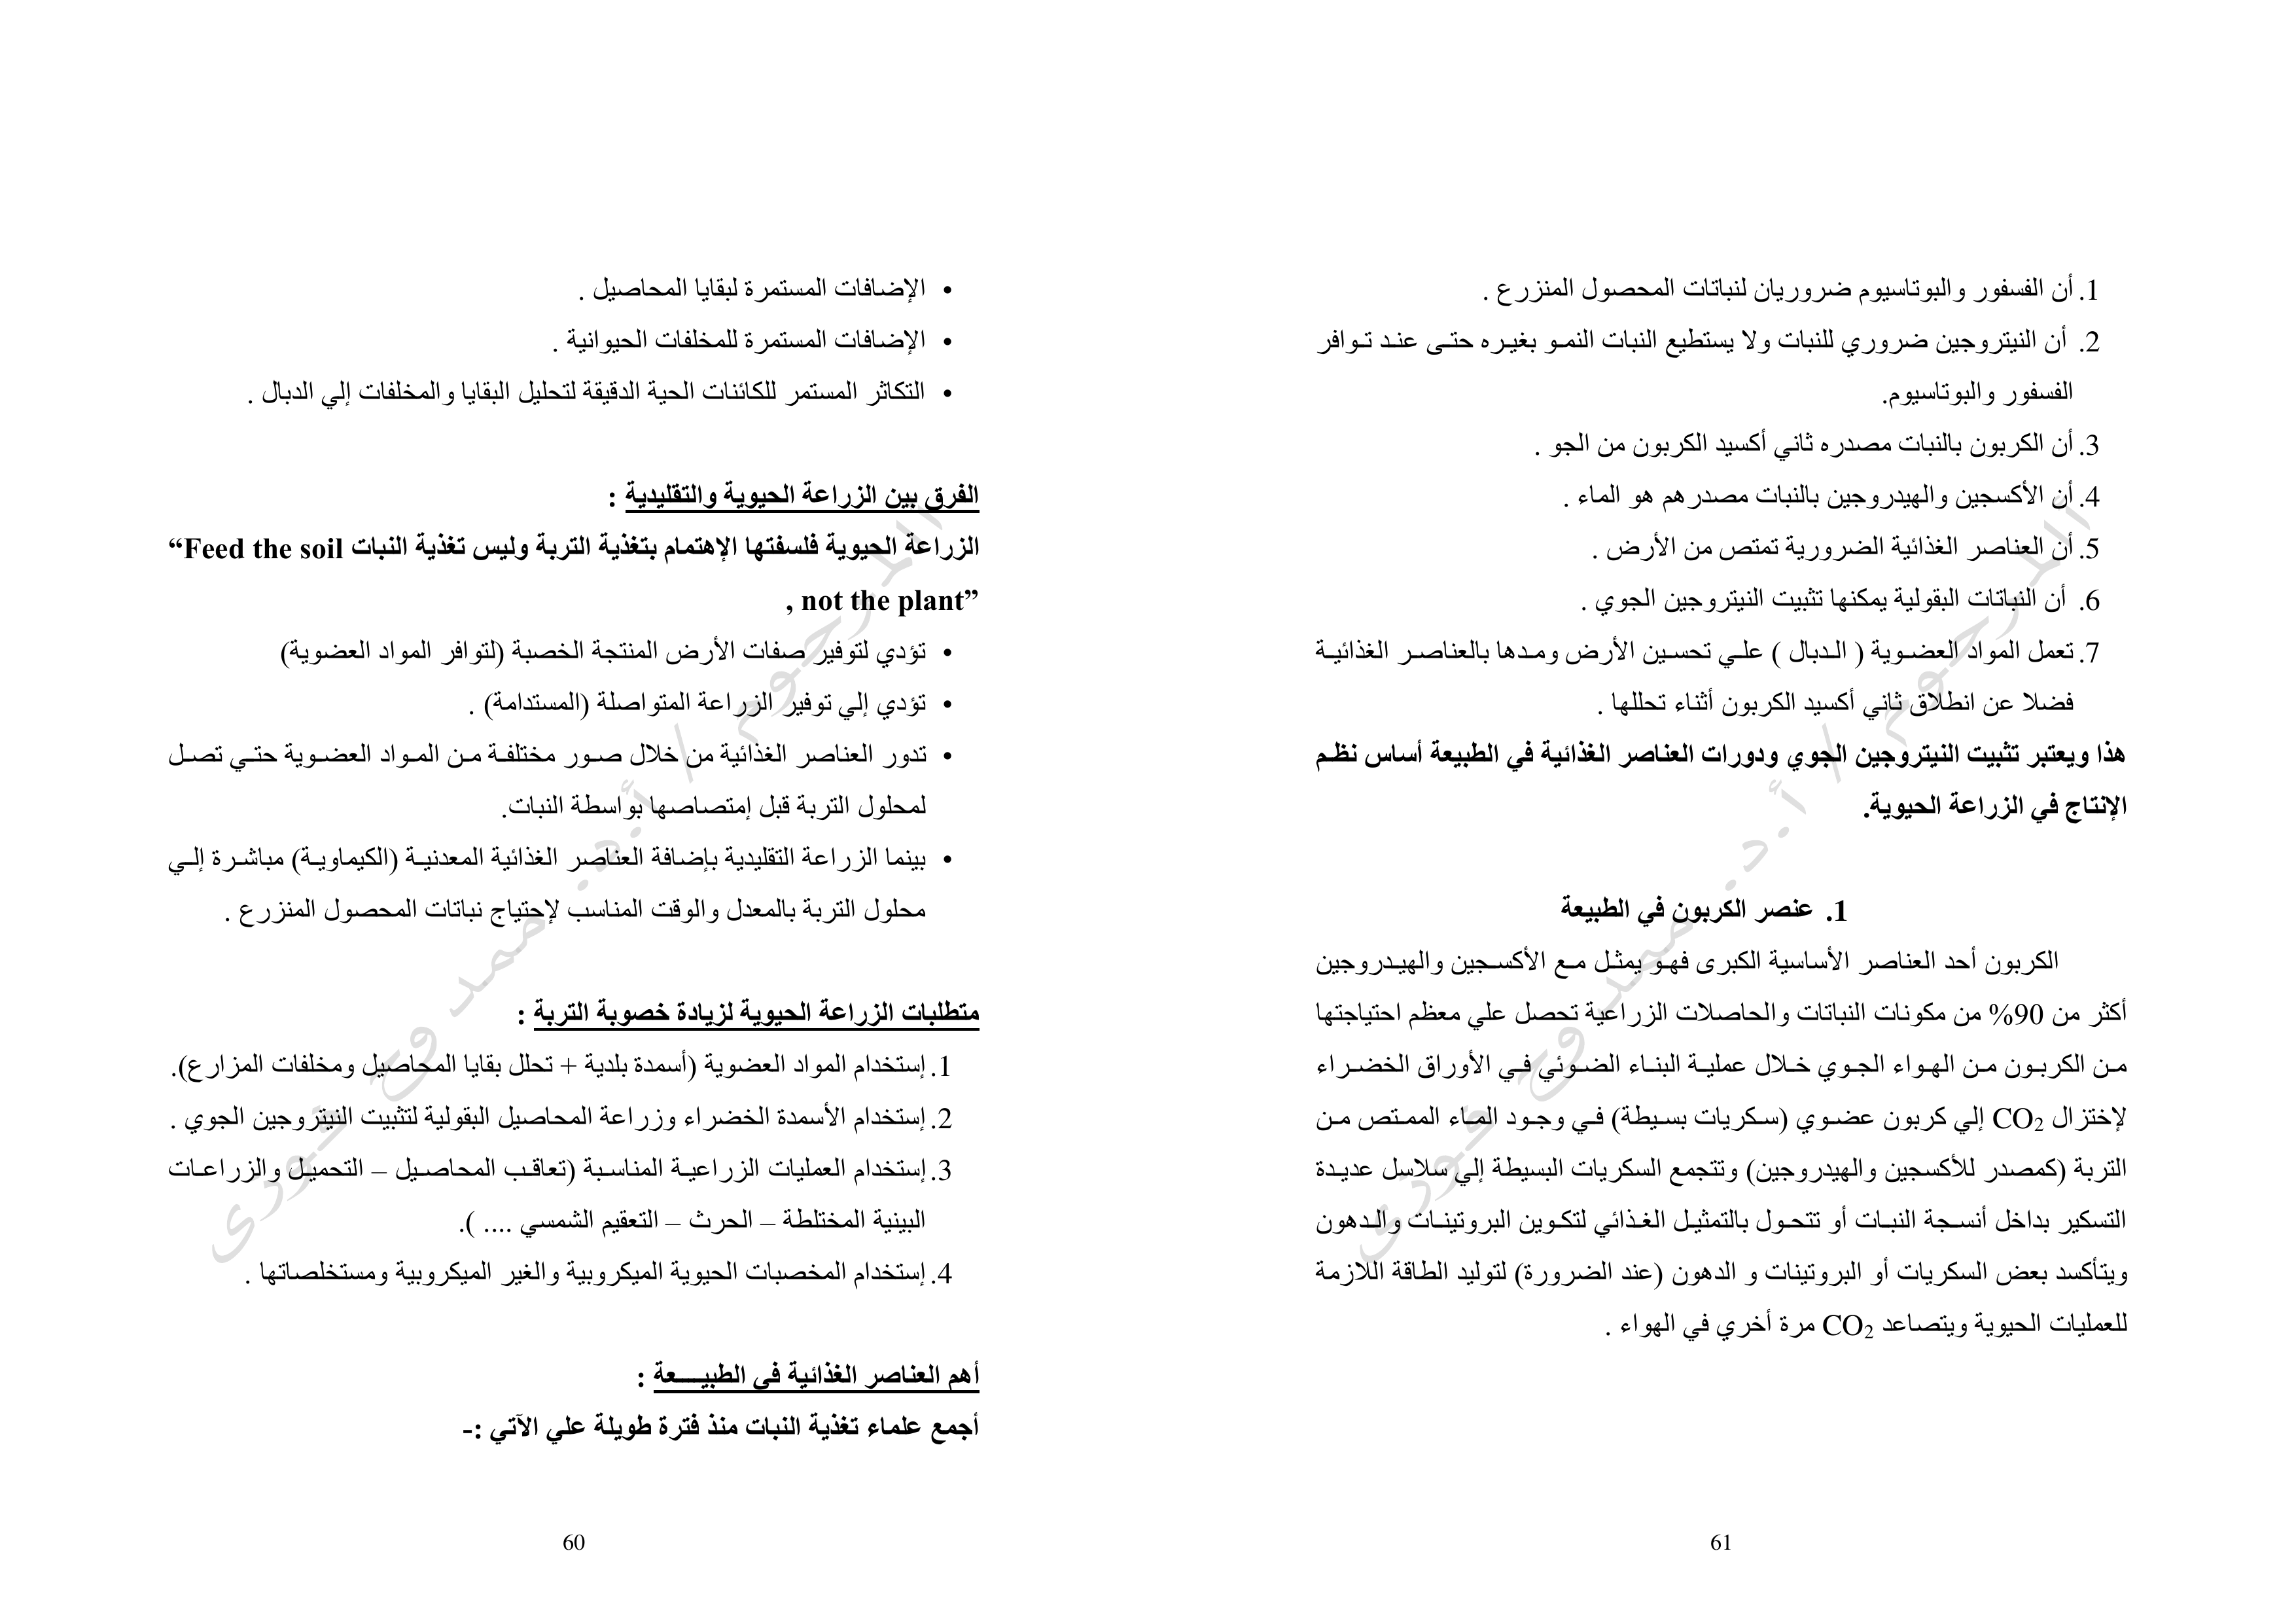 • الإضافات المستمرة لبقايا المحاصيل .
• الإضافات المستمرة للمخلفات الحيوانية .
• التكاثر المستمر للكائنات الحية الدقيقة لتحليل البقايا والمخلفات إلي الدبال .
الفرق بين الزراعة الحيوية والتقليدية :
الزراعة الحيوية فلسفتها الإهتمام بتغذية التربة وليس تغذية النبات “Feed the soil
, not the plant”
• تؤدي لتوفير صفات الأرض المنتجة الخصبة (لتوافر المواد العضوية)
• تؤدي إلي توفير الزراعة المتواصلة (المستدامة) .
• تدور العناصر الغذائية من خلال صور مختلفة من المواد العضوية حتي تصل
لمحلول التربة قبل إمتصاصها بواسطة النبات.
• بينما الزراعة التقليدية بإضافة العناصر الغذائية المعدنية (الكيماوية) مباشرة إلي
محلول التربة بالمعدل والوقت المناسب لإحتياج نباتات المحصول المنزرع .
متطلبات الزراعة الحيوية لزيادة خصوبة التربة :
1. إستخدام المواد العضوية (أسمدة بلدية + تحلل بقايا المحاصيل ومخلفات المزارع).
2. إستخدام الأسمدة الخضراء وزراعة المحاصيل البقولية لتثبيت النيتروجين الجوي .
3. إستخدام العمليات الزراعية المناسبة (تعاقب المحاصيل – التحميل والزراعات
البينية المختلطة – الحرث – التعقيم الشمسي .... ).
4. إستخدام المخصبات الحيوية الميكروبية والغير الميكروبية ومستخلصاتها .
أهم العناصر الغذائية في الطبيـــعة :
أجمع علماء تغذية النبات منذ فترة طويلة علي الآتي :-
60
1. أن الفسفور والبوتاسيوم ضروريان لنباتات المحصول المنزرع .
2. أن النيتروجين ضروري للنبات ولا يستطيع النبات النمو بغيره حتى عند توافر
الفسفور والبوتاسيوم.
3. أن الكربون بالنبات مصدره ثاني أكسيد الكربون من الجو .
4. أن الأكسجين والهيدروجين بالنبات مصدرهم هو الماء .
5. أن العناصر الغذائية الضرورية تمتص من الأرض .
6. أن النباتات البقولية يمكنها تثبيت النيتروجين الجوي .
7. تعمل المواد العضوية ( الدبال ) علي تحسين الأرض ومدها بالعناصر الغذائية
فضلا عن انطلاق ثاني أكسيد الكربون أثناء تحللها .
هذا ويعتبر تثبيت النيتروجين الجوي ودورات العناصر الغذائية في الطبيعة أساس نظم
الإنتاج في الزراعة الحيوية.
1. عنصر الكربون في الطبيعة
الكربون أحد العناصر الأساسية الكبرى فهو يمثل مع الأكسجين والهيدروجين
أكثر من 90% من مكونات النباتات والحاصلات الزراعية تحصل علي معظم احتياجتها
من الكربون من الهواء الجوي خلال عملية البناء الضوئي في الأوراق الخضراء
لإختزال CO2 إلي كربون عضوي (سكريات بسيطة) في وجود الماء الممتص من
التربة (كمصدر للأكسجين والهيدروجين) وتتجمع السكريات البسيطة إلي سلاسل عديدة
التسكير بداخل أنسجة النبات أو تتحول بالتمثيل الغذائي لتكوين البروتينات والدهون
ويتأكسد بعض السكريات أو البروتينات و الدهون (عند الضرورة) لتوليد الطاقة اللازمة
للعمليات الحيوية ويتصاعد CO2 مرة أخري في الهواء .
61
المرحوم / أ.د. ممدوح فوزى
المرحوم / أ.د. ممدوح فوزى